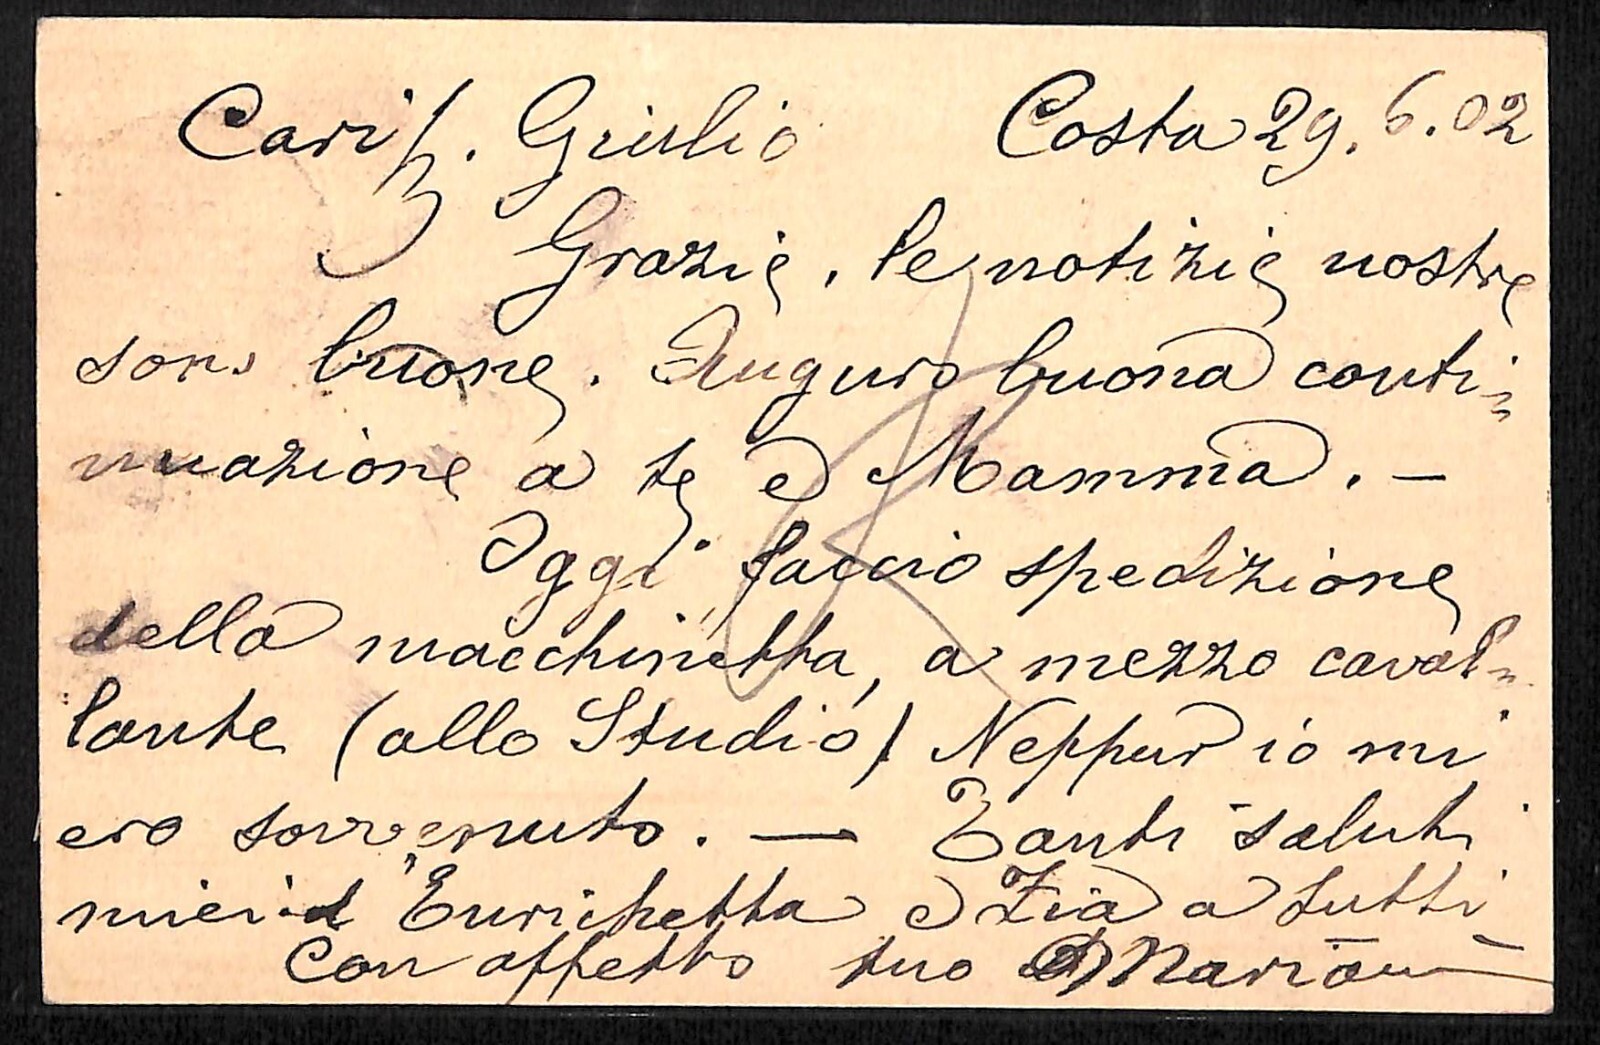 Cariss. Giulio Costa 29.6.02
Grazie, le notizie nostre
sono buone. Auguro buona conti=
nuazione a te e Mamma. —
Oggi faccio spedizione
della macchinetta, a mezzo caval=
lante (allo Studio) Neppur io mi
ero sovvenuto. — Tanti saluti
miei d'Enrichetta e Zia a tutti
Con affetto tuo